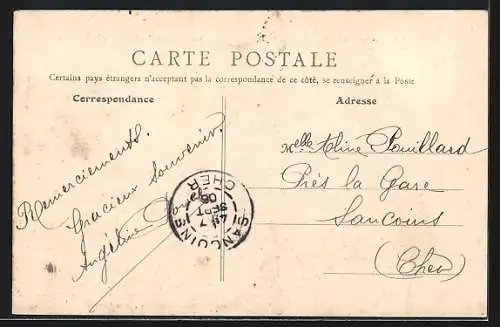 CARTE POSTALE
Certains pays étrangers n'acceptant pas la correspondance de ce côté, se renseigner à la Poste
Correspondance
Remerciements.
Gracieux souvenir.
Angéline
Adresse
Melle Aline Pouillard
Près la Gare
Sancoins
(Cher)
SANCOINS
CHER
SEPT
06